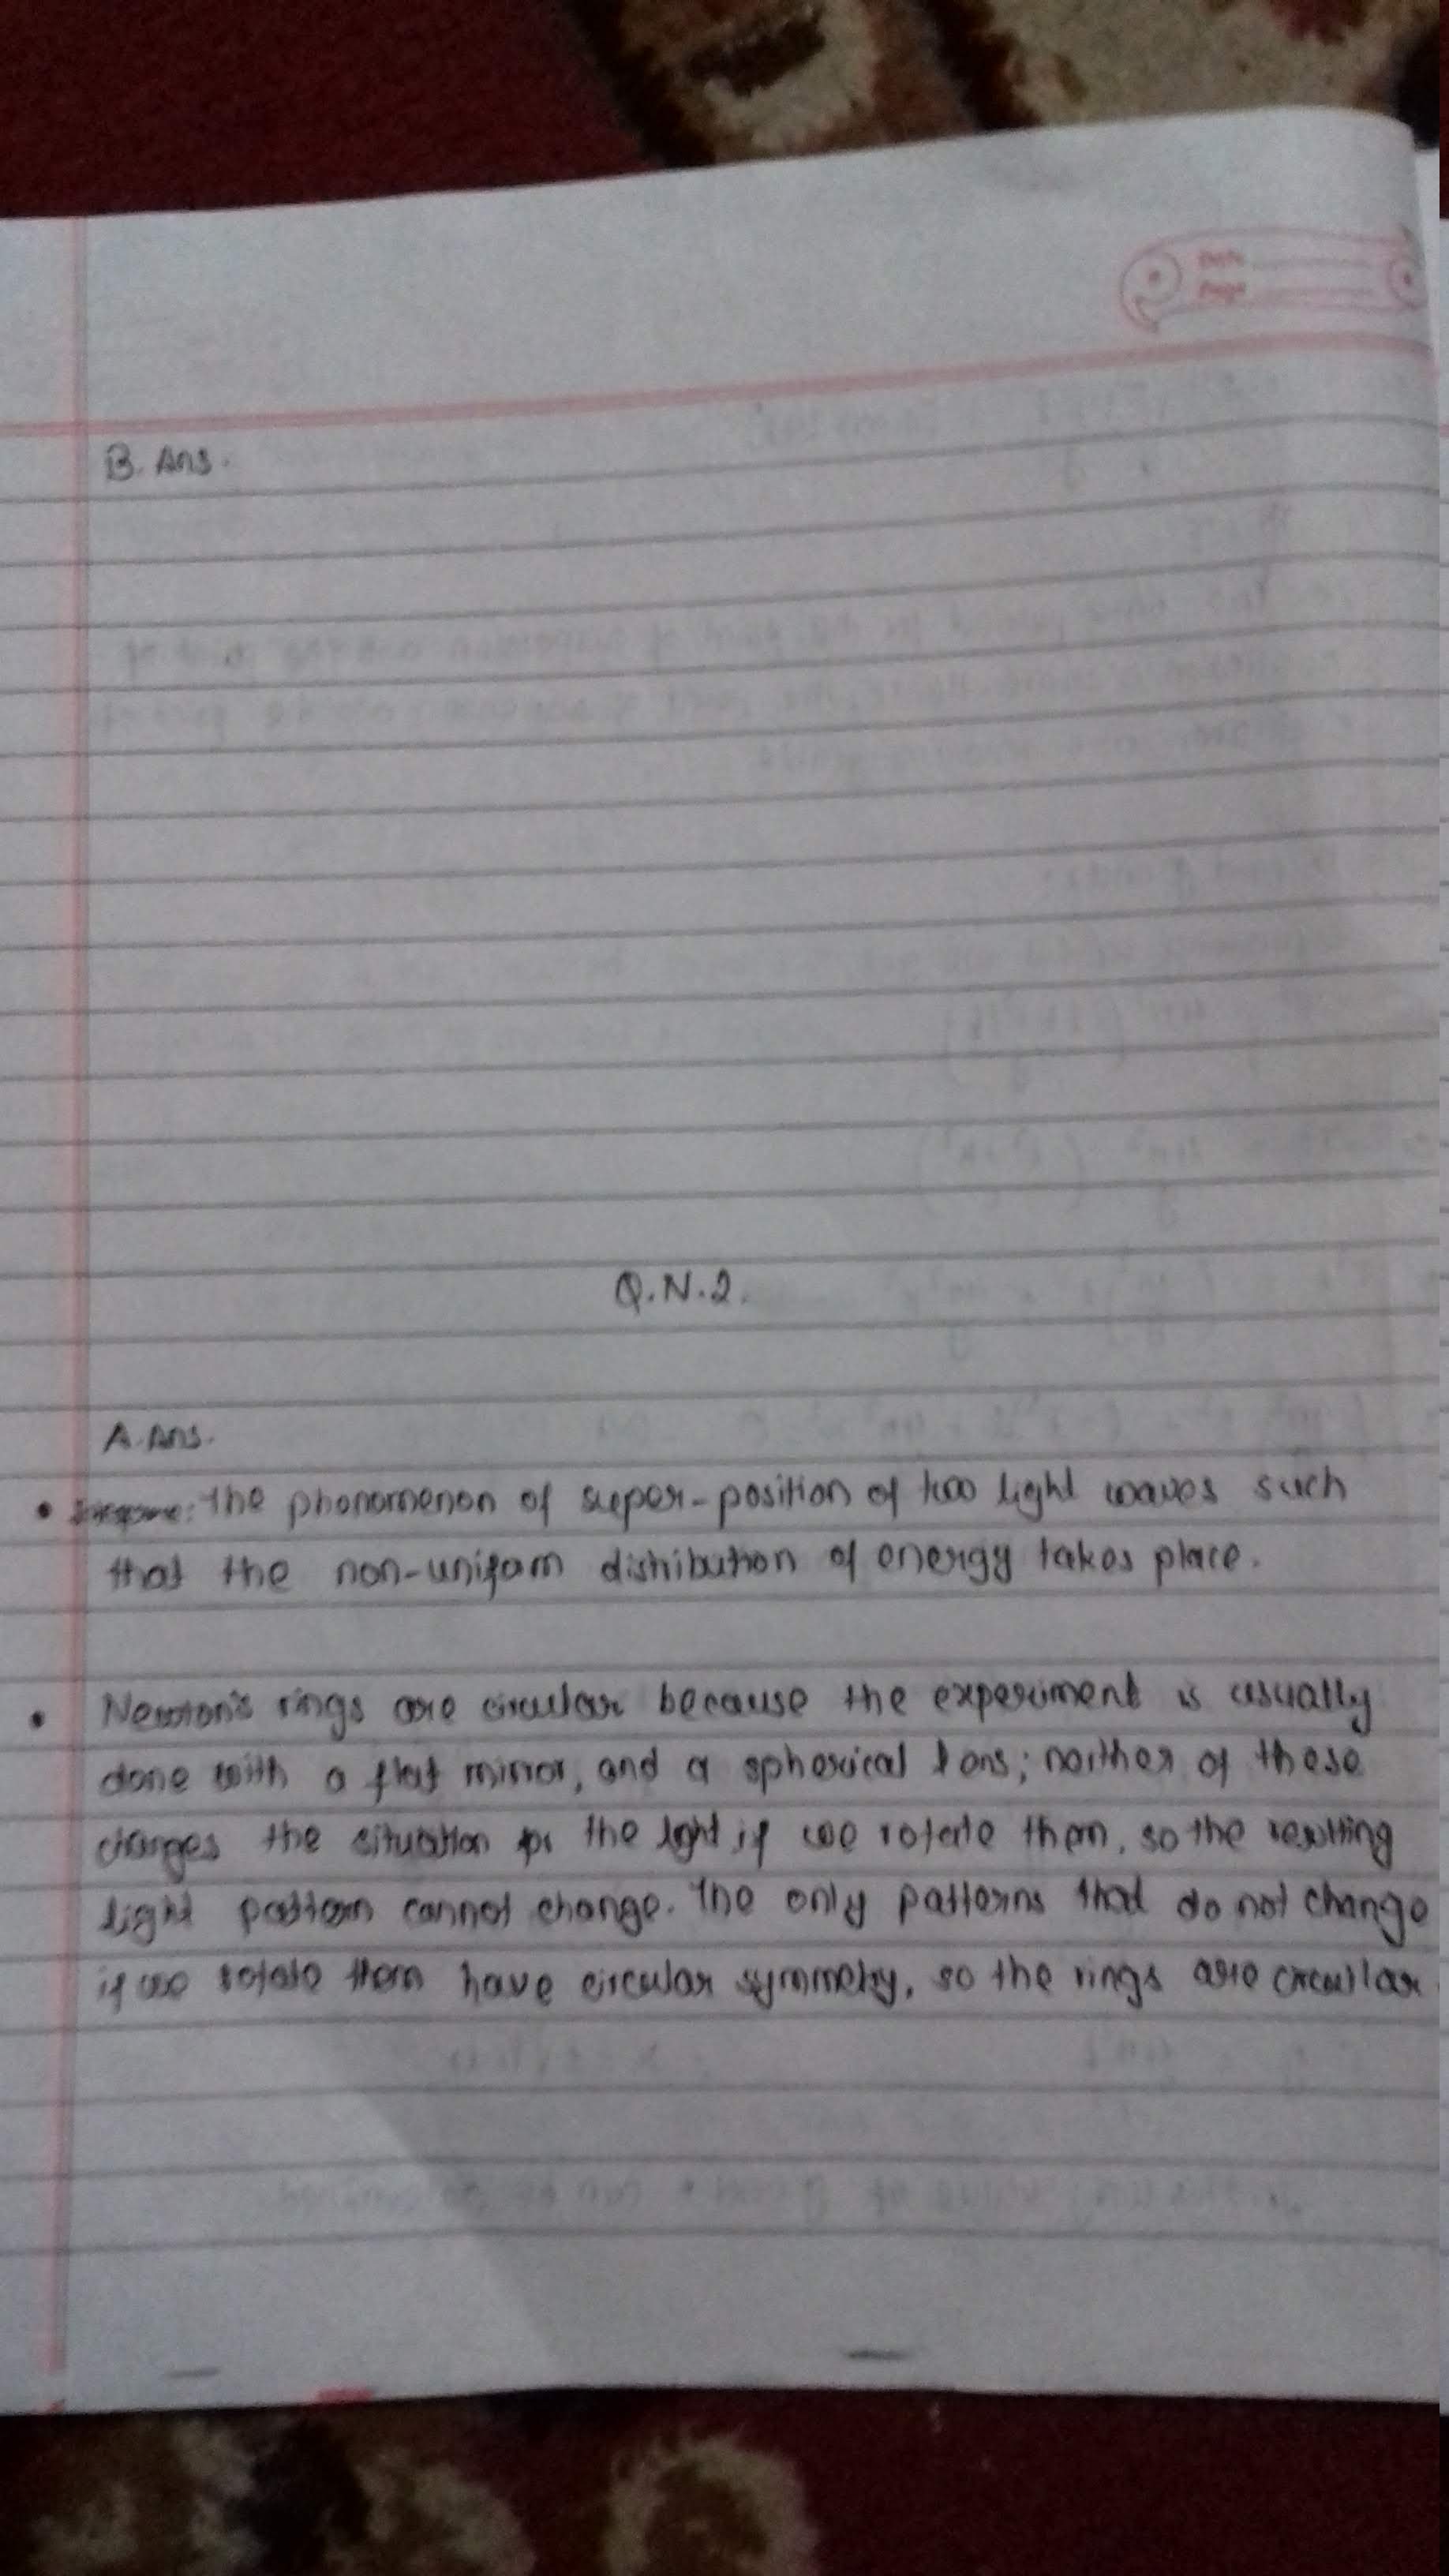 Date
Page
B. Ans.
Q.N.2.
A. Ans.
• the phonomenon of super-position of two light waves such
that the non-unifom distribution of energy takes place.
• Newton's rings are circular because the experiment is usually
done with a flat mirror, and a spherical lens; neither of these
changes the situation for the light if we rotate them, so the resulting
light pattern cannot change. The only patterns that do not change
if we rotate them have circular symmetry, so the rings are circular